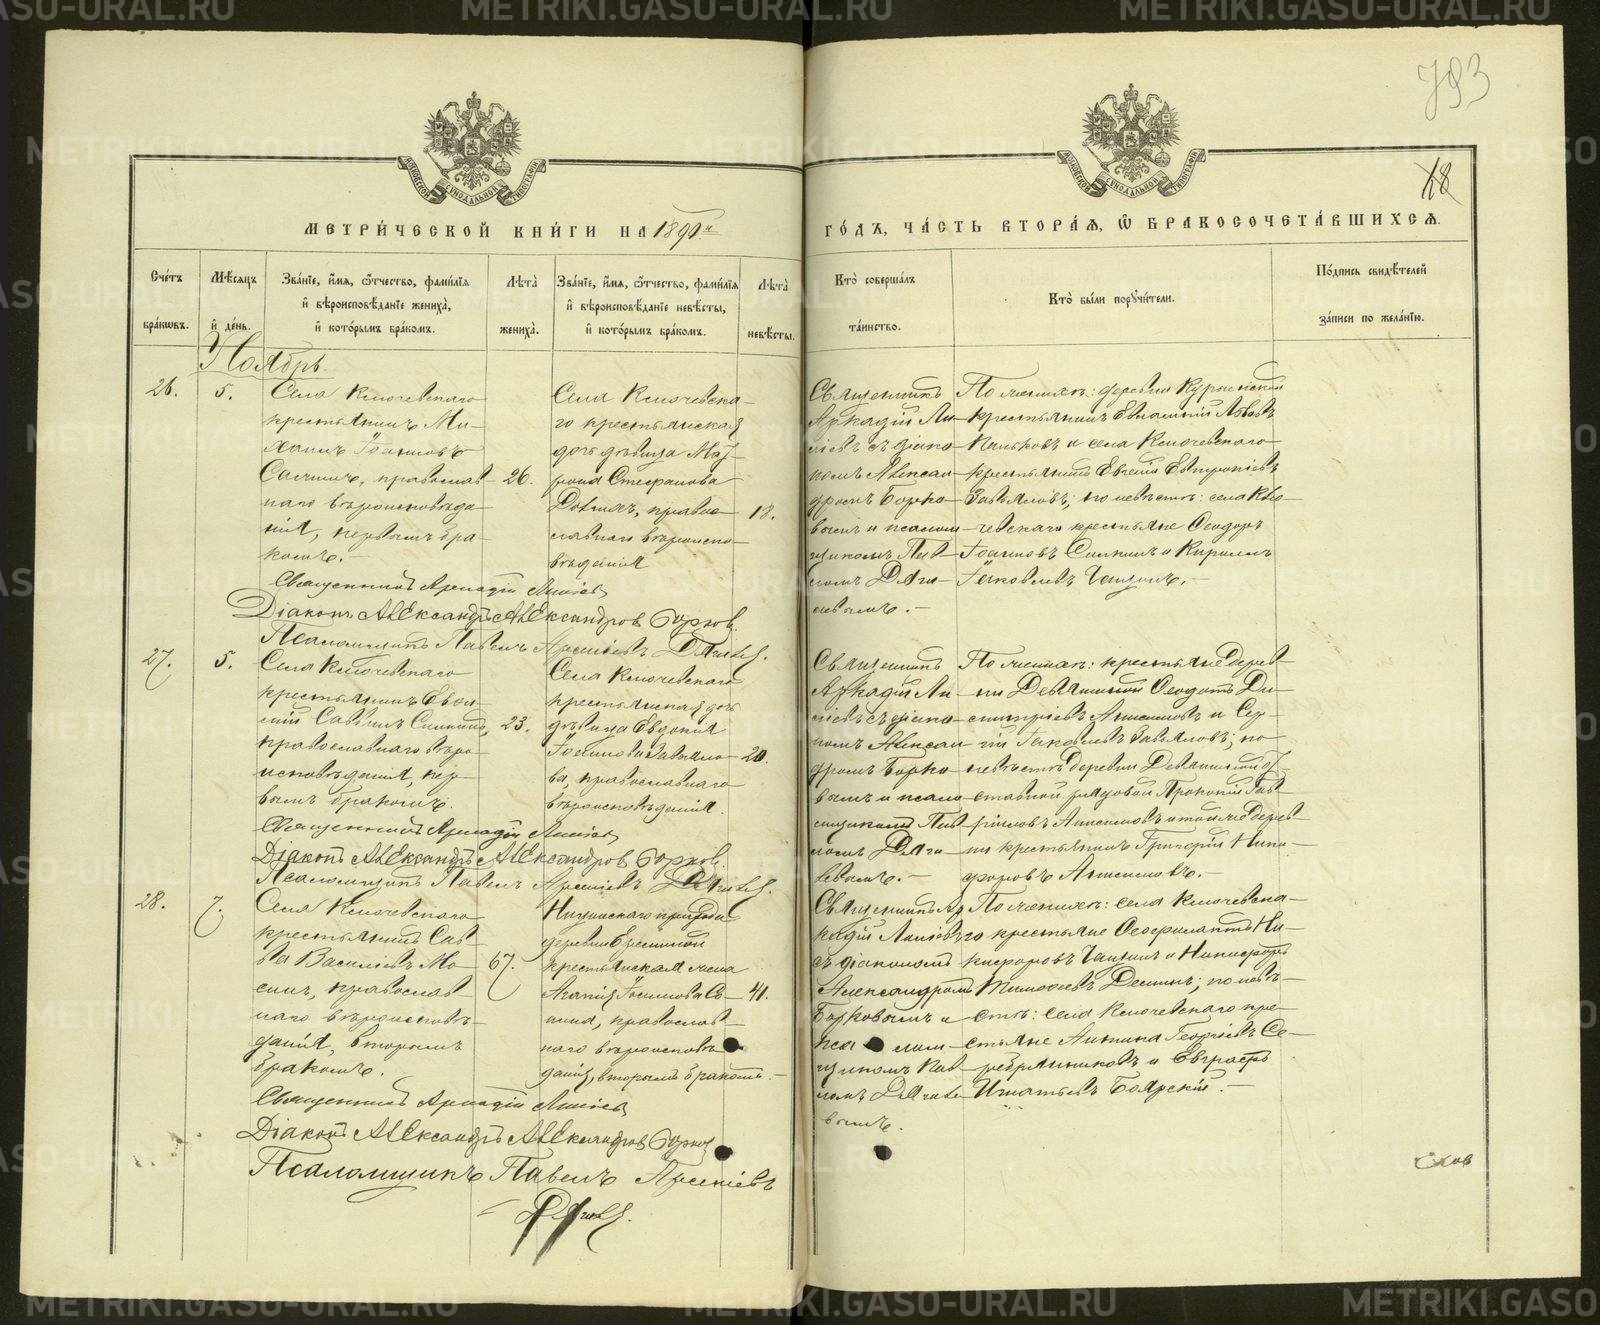 793
18
МЕТРИ́ЧЕСКОЙ КНИ́ГИ НА 1891й
ГО́ДЪ, ЧА́СТЬ ВТОРА́Я, Ѡ БРАКОСОЧЕТА́ВШИХСЯ.
Сче́тъ бра́ковъ.
Мѣ́сяцъ и де́нь.
Зва́нїе, и́мя, ѻ́тчество, фами́лїя
и҆ вѣроисповѣ́данїе жениха̀,
и҆ кото́рымъ бра́комъ.
Лѣта̀ жениха̀.
Зва́нїе, и́мя, ѻ́тчество, фами́лїя
и҆ вѣроисповѣ́данїе невѣ́сты,
и҆ кото́рымъ бра́комъ.
Лѣта̀ невѣ́сты.
Кто̀ соверша́лъ
та́инство.
Кто̀ бы́ли порꙋчи́тели.
По́дпись свидѣ́телей
за́писи по жела́нїю.
Ноябрь.
26.
5.
Села Ключевскаго
крестьянинъ Ми-
хаилъ Іоанновъ
православ-
наго вѣроисповѣда-
нія, первымъ бра-
комъ.
26.
Села Ключевска-
го крестьянская
дочь дѣвица Мат-
рона Стефанова
правос-
лавнаго вѣроиспо-
вѣданія
18.
Священникъ
Аркадій Ли-
сіевъ съ діако-
номъ Алексан-
дромъ Борко-
вымъ и псалом-
щикомъ Пав-
ломъ Дяги-
левымъ.
По женихѣ: деревни
крестьянинъ Евлампій Львовъ
и села Ключевскаго
крестьянинъ Евгеній Евтропіевъ
Завьяловъ; по невѣстѣ: села Клю-
чевскаго крестьяне Ѳеодоръ
Іоанновъ и Кириллъ
Іаковлевъ Чащинъ.
Священникъ Аркадій
Діаконъ Александръ Александровъ Борков.
Псаломщикъ Павелъ Арсеніевъ Дягилев.
27.
5.
Села Ключевскаго
крестьянинъ Евѳи-
мій Саввинъ
православнаго вѣро-
исповѣданія, пер-
вымъ бракомъ.
23.
Села Ключевскаго
крестьянская дочь
дѣвица Евдокія
Іоаннова Завьяло-
ва, православнаго
вѣроисповѣданія.
20.
Священникъ
Аркадій Ли-
сіевъ съ діако-
номъ Алексан-
дромъ Борко-
вымъ и псалом-
щикомъ Пав-
ломъ Дяги-
левымъ.
По женихѣ: крестьяне дерев-
ни Девяшиной Ѳеодотъ Ди-
митріевъ Анисимовъ и Сер-
гій Іаковлевъ Завьяловъ; по
невѣстѣ деревни Девяшиной от-
ставной рядовой Прокопій Гав-
ріиловъ Анисимовъ и той же дерев-
ни крестьянинъ Григорій Ники-
форовъ Анисимовъ.
Священникъ Аркадій
Діаконъ Александръ Александров Борков.
Псаломщикъ Павелъ Арсеніевъ Дягилев.
28.
7.
Села Ключевскаго
крестьянинъ Сав-
ва Василіевъ Мо-
синъ, православ-
наго вѣроисповѣ-
данія, вторымъ
бракомъ.
67.
прихода
деревни
крестьянская жена
Агапія Іоаннова
православ-
наго вѣроисповѣ-
данія, вторымъ бракомъ.
41.
Священникъ Ар-
кадій Лисіевъ
съ діакономъ
Александромъ
Борковымъ и
псаломщикомъ Пав-
ломъ Дягиле-
вымъ.
По женихѣ: села Ключевска-
го крестьяне Ѳеофилактъ Ни-
кифоровъ Чащинъ и Никифоръ
Тимоѳеевъ Деминъ; по невѣ-
стѣ: села Ключевскаго кре-
стьяне Антипа Георгіевъ Се-
ребрянниковъ и Евграфъ
Игнатьевъ Боярскій.
Священникъ Аркадій
Діаконъ Александръ Александров Борков
Псаломщикъ Павелъ Арсеніевъ
Дягилев.
METRIKI.GASO-URAL.RU